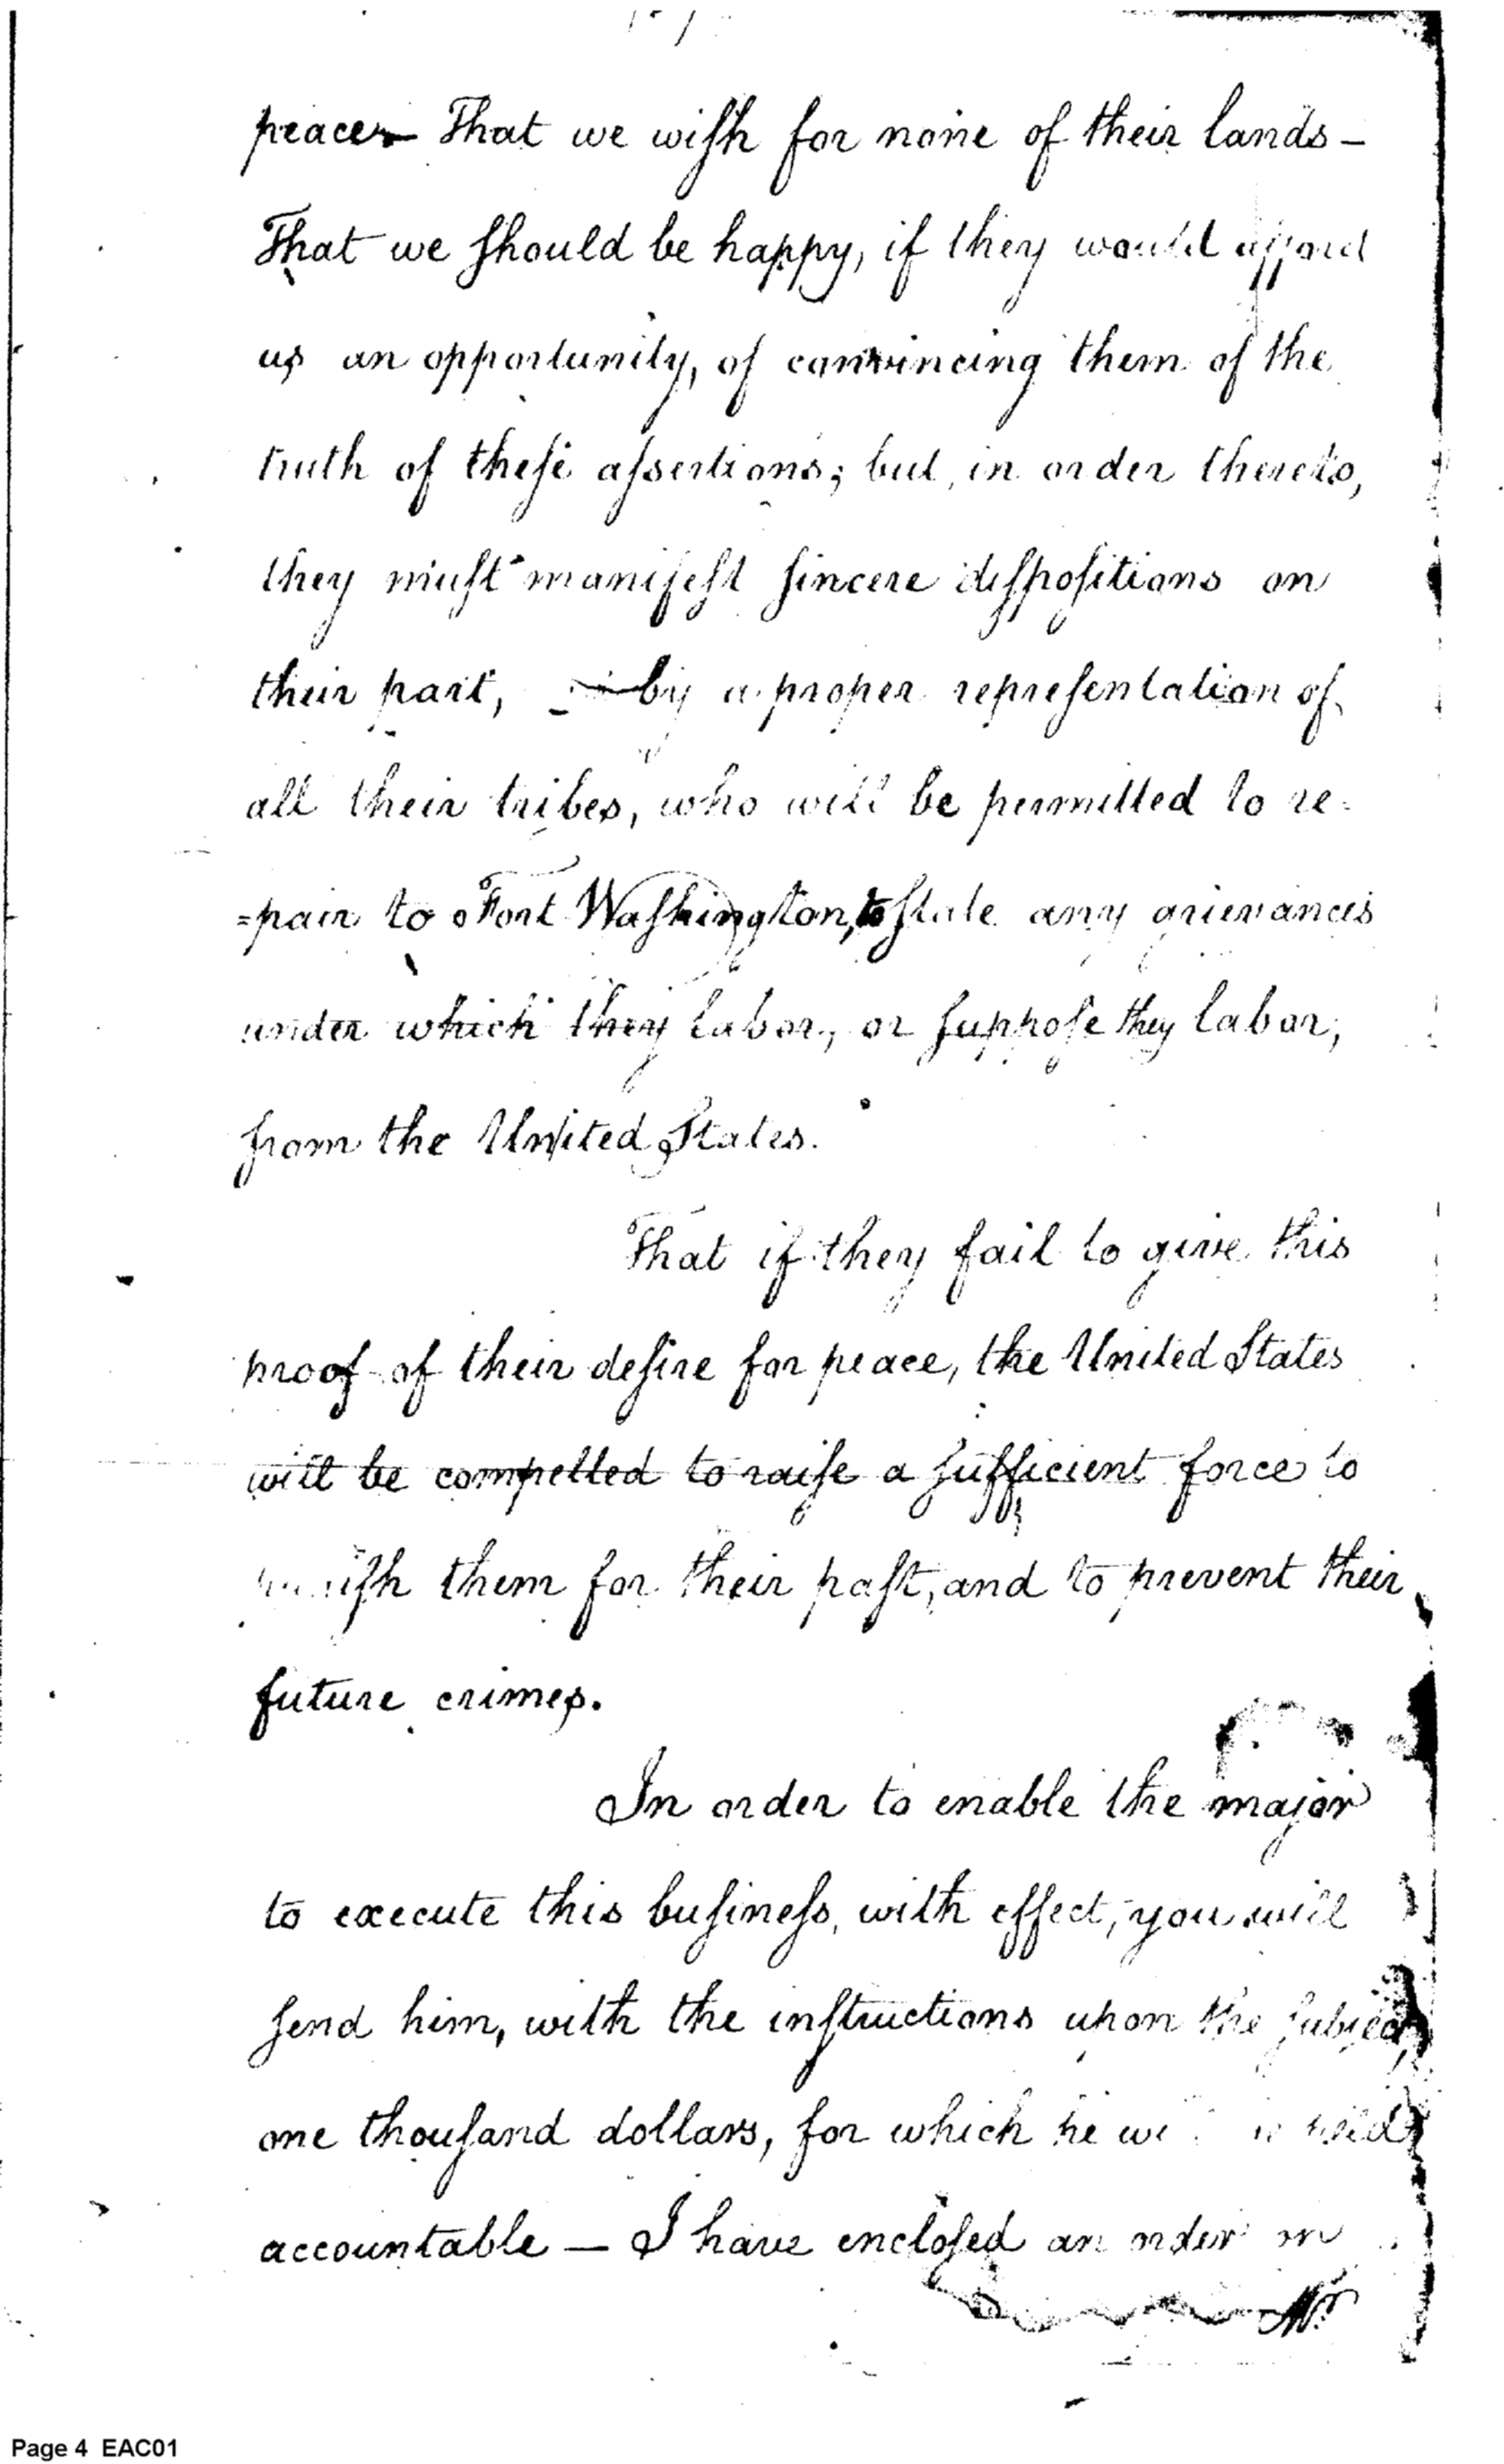 peace – That we wish for none of their lands –
That we should be happy, if they would afford
us an opportunity, of convincing them of the
truth of these assertions; but, in order thereto,
they must manifest sincere dispositions on
their part, by a proper representation of
all their tribes, who will be permitted to re=
=pair to Fort Washington, to state any grievances
under which they labor, or suppose they labor,
from the United States.
That if they fail to give this
proof of their desire for peace, the United States
will be compelled to raise a sufficient force to
punish them for their past, and to prevent their
future crimes.
In order to enable the major
to execute this business, with effect, you will
send him, with the instructions upon the subject,
one thousand dollars, for which he will be held
accountable – I have enclosed an order on
Mr.
Page 4 EAC01